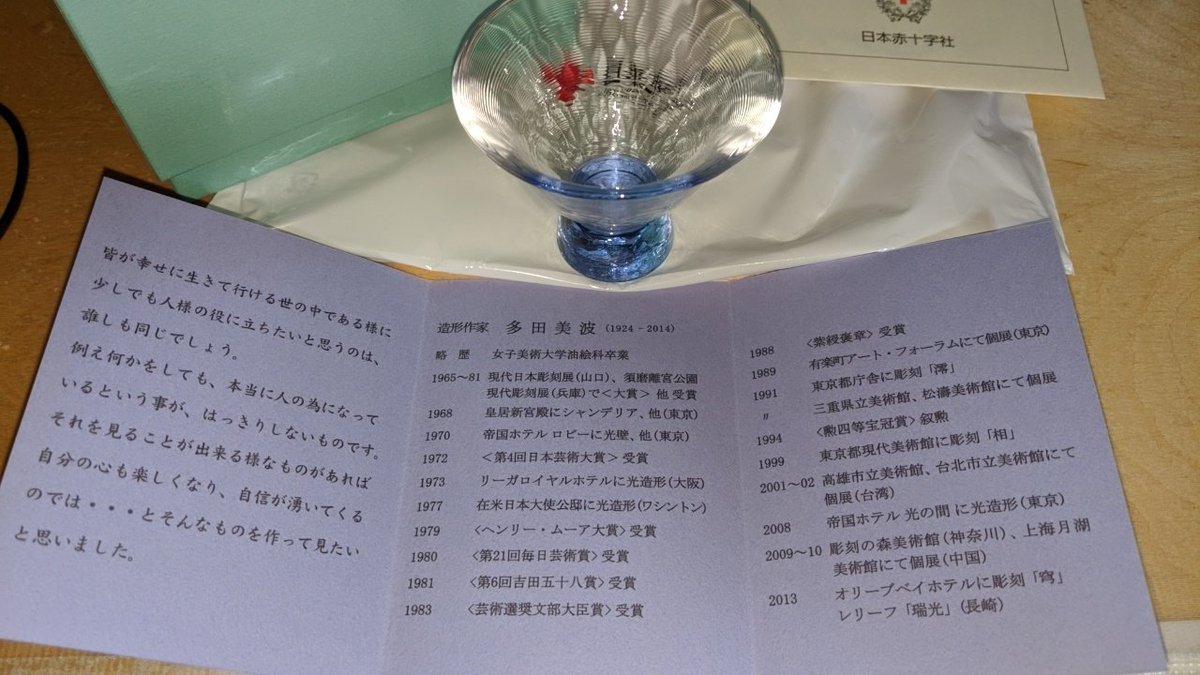 日本赤十字社
皆が幸せに生きて行ける世の中である様に
少しでも人様の役に立ちたいと思うのは、
誰しも同じでしょう。
例え何かをしても、本当に人の為になって
いるという事が、はっきりしないものです。
それを見ることが出来る様なものがあれば
自分の心も楽しくなり、自信が湧いてくる
のでは・・・とそんなものを作って見たい
と思いました。
造形作家 多田美波 (1924 - 2014)
略 歴 女子美術大学油絵科卒業
1965～81 現代日本彫刻展(山口)、須磨離宮公園
現代彫刻展(兵庫)で<大賞> 他 受賞
1968 皇居新宮殿にシャンデリア、他(東京)
1970 帝国ホテル ロビーに光壁、他(東京)
1972 <第4回日本芸術大賞> 受賞
1973 リーガロイヤルホテルに光造形(大阪)
1977 在米日本大使公邸に光造形(ワシントン)
1979 <ヘンリー・ムーア大賞> 受賞
1980 <第21回毎日芸術賞> 受賞
1981 <第6回吉田五十八賞> 受賞
1983 <芸術選奨文部大臣賞> 受賞
1988 <紫綬褒章> 受賞
1989 有楽町アート・フォーラムにて個展(東京)
1991 東京都庁舎に彫刻「澪」
〃 三重県立美術館、松濤美術館にて個展
1994 <勲四等宝冠賞> 叙勲
1999 東京都現代美術館に彫刻「相」
2001～02 高雄市立美術館、台北市立美術館にて
個展(台湾)
2008 帝国ホテル 光の間 に光造形(東京)
2009～10 彫刻の森美術館(神奈川)、上海月湖
美術館にて個展(中国)
2013 オリーブベイホテルに彫刻「穹」
レリーフ「瑞光」(長崎)